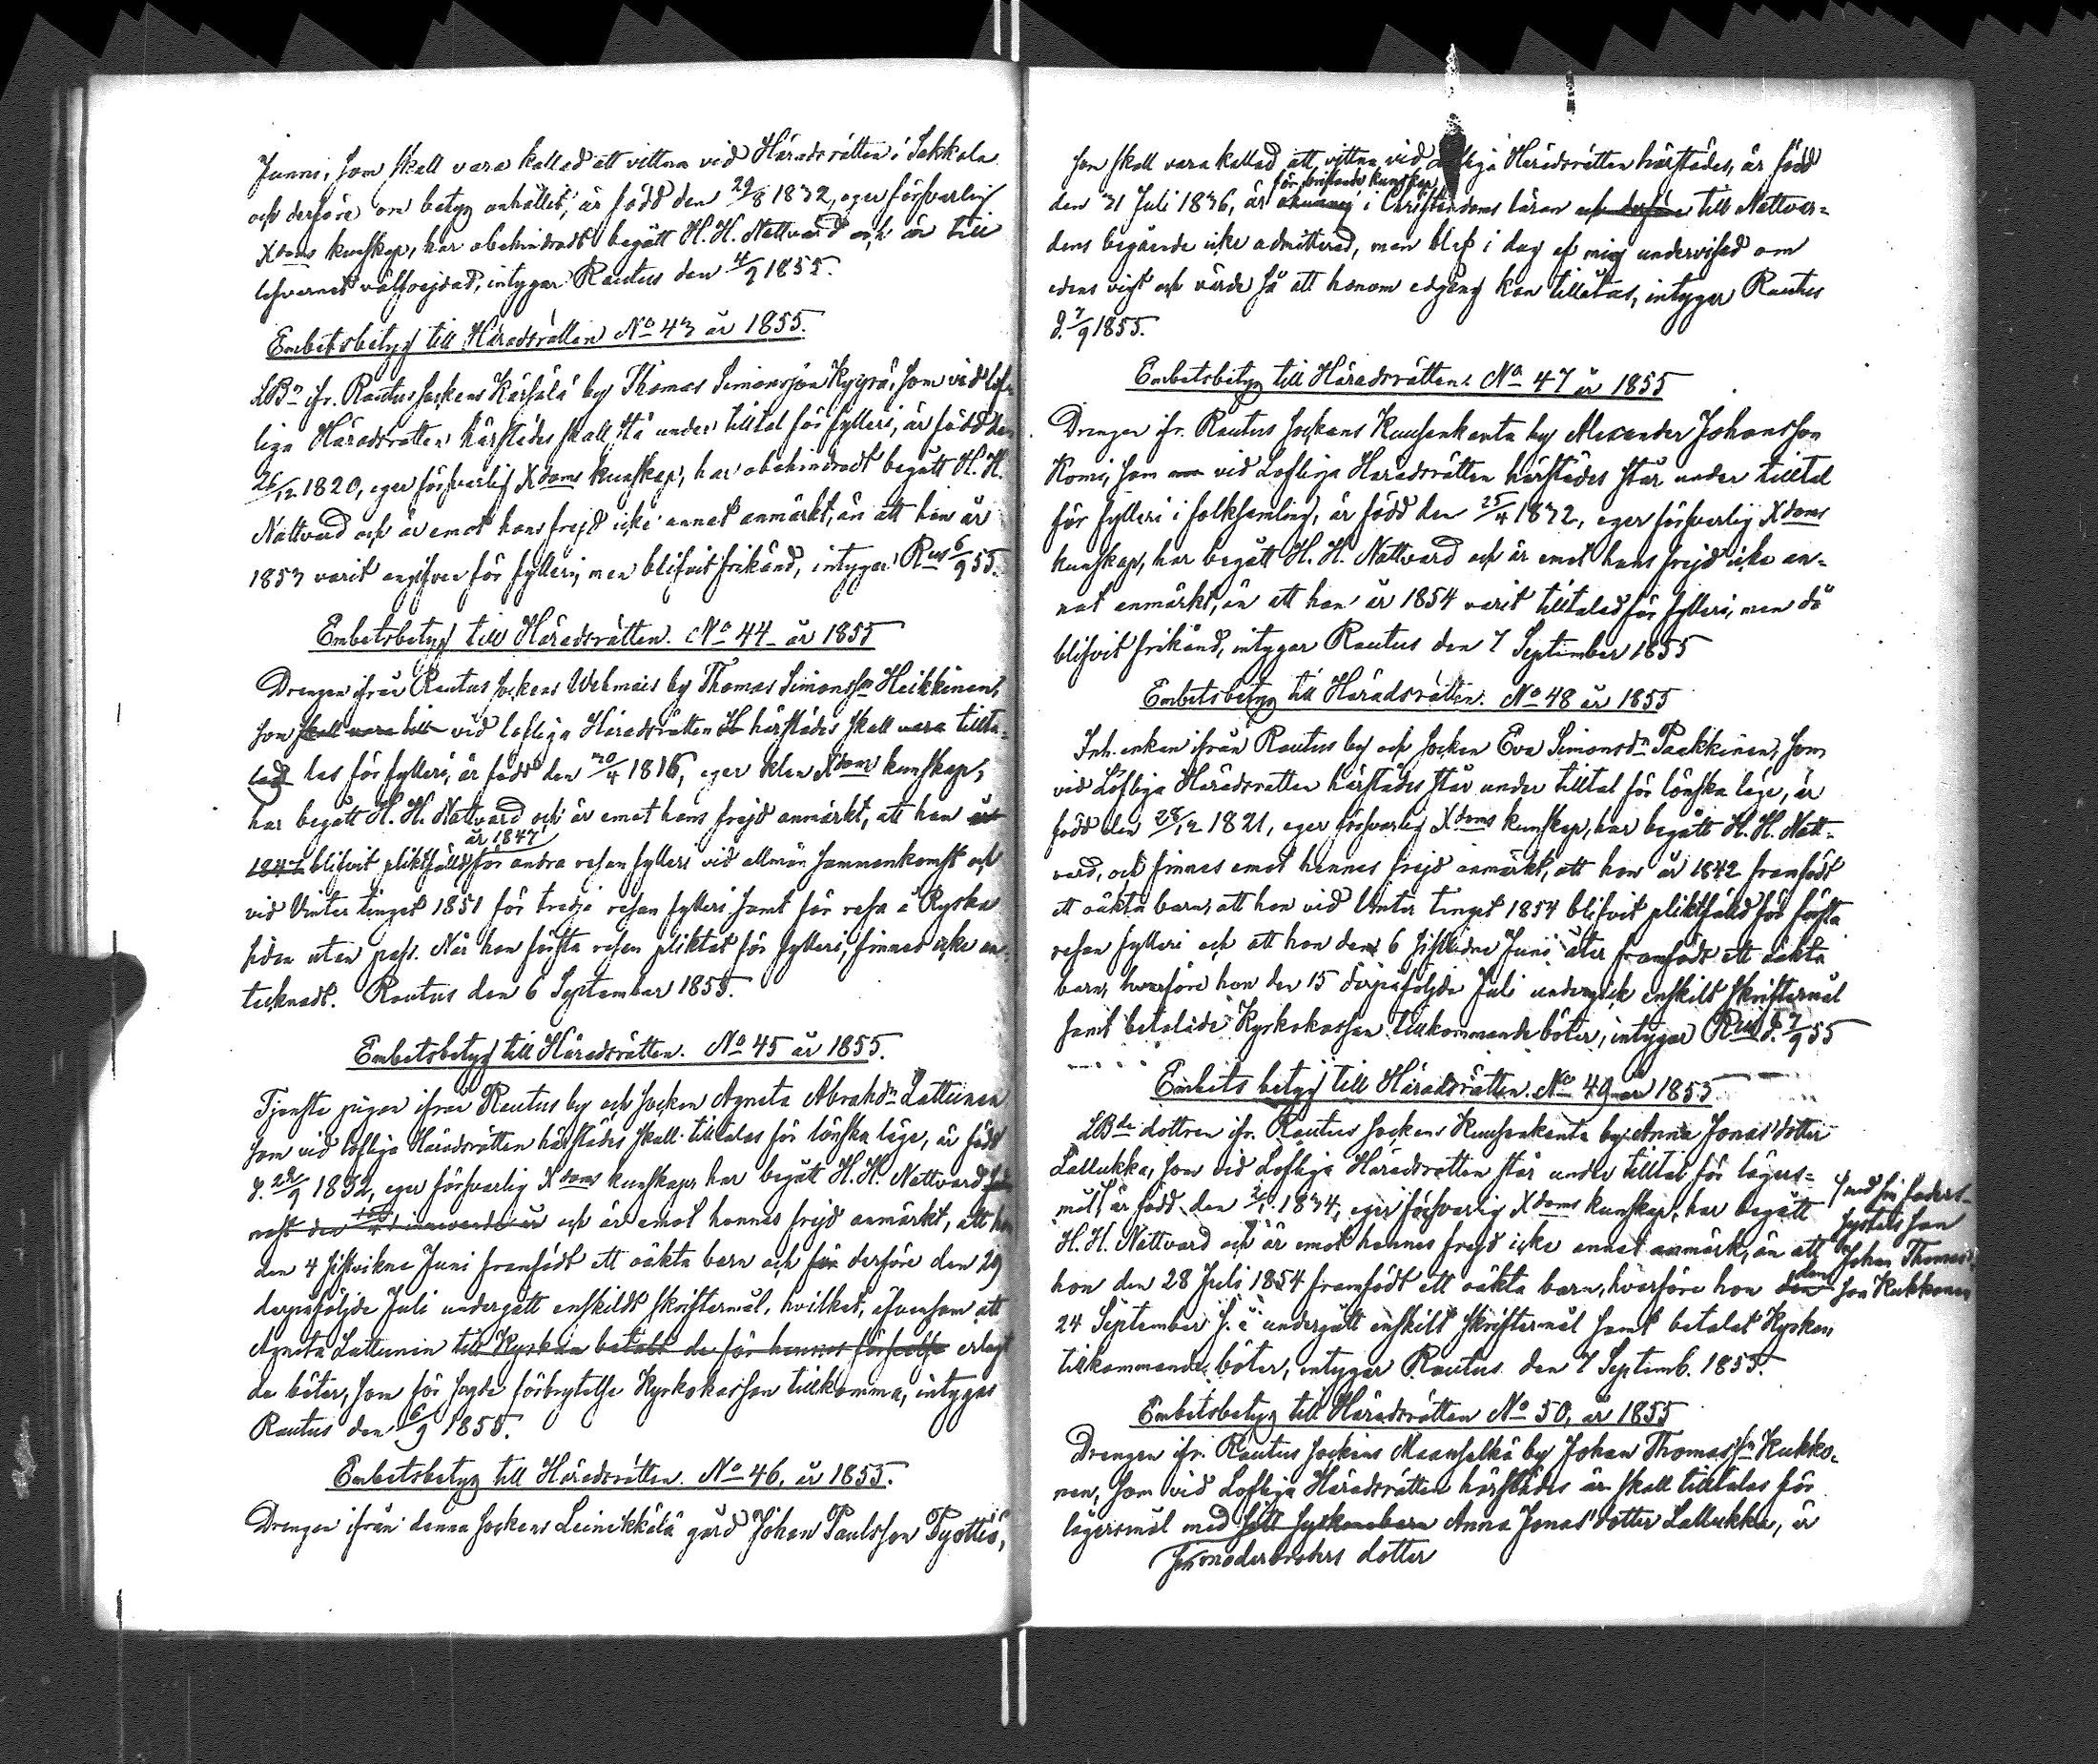 Junni, som skall vara kallad att vittna vid Häradsrätten i Sakkola
och derföre om betyg anhållit, är född den 29/8 1832, eger försvarlig
Xdoms kunskap, har obehindradt begått H. H. Nattvard och är till
lefvernet välfrejdad, intygar Rautus den 4/9 1855.
Embetsbetyg till Häradsrätten No 43 år 1855.
LBn ifr. Rautus sockens Kärsälä by Thomas Simonsson Kyyrö, som vid lof-
liga Häradsrätten härstädes skall stå under tilltal för fylleri, är född den
26/12 1820, eger försvarlig Xdoms kunskap, har obehindradt begått H. H.
Nattvard och är emot hans frejd icke annat anmärkt, än att han år
1853 varit angifven för fylleri, men blifvit frikänd, intygar Rus 6/9 55.
Embetsbetyg till Häradsrätten. No 44 år 1855
Drengen ifrån Rautus sockens Wehmais by Thomas Simonssn Heikkinen,
som skall vara till vid lofliga Häradsrätten H härstädes skall vara tillta-
lad las för fylleri, är född den 30/4 1816, eger klen Xdoms kunskap,
har begått H. H. Nattvard och är emot hans frejd anmärkt, att han år
år 1847
1847 blifvit pliktfälld för andra resan fylleri vid allmän sammankomst och
vid Vinter tinget 1851 för tredje resan fylleri samt för resa å Ryska
sidan utan pass. När han första resan pliktat för fylleri, finnes icke an-
tecknadt. Rautus den 6 September 1855.
Embetsbetyg till Häradsrätten. No 45 år 1855.
Tjenste pigan ifrån Rautus by och socken Agneta Abrahdr Lattunen
som vid lofliga Häradsrätten härstädes skall tilltalas för lönska läge, är född
d. 22/9 1832, eger försvarlig Xdoms kunskap, har begått H. H. Nattvard
nast den innevarande år och är emot hennes frejd anmärkt, att hon
den 4 sistvikne Juni framfödt ett oäkta barn och derföre den 29
derpåföljde Juli undergått enskildt skriftermål, hvilket, äfvensom att
Agneta Lattunen till Kyrkan betalt de för hennes förseelse erlagt
de böter, som för sagde förbrytelse Kyrkokassan tillkomma, intygas
Rautus den 6/9 1855.
Embetsbetyg till Häradsrätten. No 46. år 1855.
Drengen ifrån denna sockens Leinikkälä gård Johan Paulsson Pyöttiö,
som skall vara kallad att vittna vid Lofliga Häradsrätten härstädes, är född
för bristande kunskap
den 31 Juli 1836, är okunnig i Christendoms läran och derföre till Nattvar-
dens begående icke admitterad, men blef i dag af mig undervisad om
edens vigt och värde så att honom edgång kan tillåtas, intygar Rautus
d. 7/9 1855.
Embetsbetyg till Häradsrätten. No 47 år 1855
Drengen ifr. Rautus sockens Kuusenkanta by Alexander Johansson
Komi, som vid Lofliga Häradsrätten härstädes står under tilltal
för fylleri i folksamling, är född den 25/4 1832, eger försvarlig Xdoms
kunskap, har begått H. H. Nattvard och är emot hans frejd icke an-
nat anmärkt, än att han år 1854 varit tilltalad för fylleri, men då
blifvit frikänd, intygar Rautus den 7 September 1855
Embetsbetyg till Häradsrätten. No 48 år 1855
Inh. enkan ifrån Rautus by och socken Eva Simonsdr Paakkinen, som
vid Lofliga Häradsrätten härstädes står under tilltal för lönska läge, är
född den 28/12 1821, eger försvarlig Xdoms kunskap, har begått H. H. Natt-
vard, och finnes emot hennes frejd anmärkt, att hon år 1842 framfödt
ett oäkta barn, att hon vid Vinter tinget 1854 blifvit pliktfälld för första
resan fylleri och att hon den 6 sistledne Juni åter framfödt ett oäkta
barn, hvarföre hon den 15 derpåföljde Juli undergick enskilt skriftermål
samt betalade Kyrkokassan tillkommande böter, intygar Rus d. 7/9 55
Embets betyg till Häradsrätten. No 49 år 1855
LBde dottren ifr. Rautus sockens Kuusenkanta by Anna Jonas dotter
Lallukka, som vid Lofliga Häradsrätten står under tilltal för lägers-
mål, är född den 1834, eger försvarlig Xdoms kunskap, har begått
H. H. Nattvard och är emot hennes frejd icke annat anmärk, än att
hon den 28 Juli 1854 framfödt ett oäkta barn, hvarföre hon den
24 September s. å undergått enskilt skriftermål samt betalat Kyrkan
tillkommande böter, intygar Rautus den 7 Septemb. 1855.
med sin faders
systers son
Johan Thomas-
son Kukkonen
Embetsbetyg till Häradsrätten No 50, år 1855
Drengen ifr. Rautus sockens Maanselkä by Johan Thomassn Kukko-
nen, som vid Lofliga Häradsrätten härstädes skall tilltalas för
lägersmål med sitt syskonebarn Anna Jonas dotter Lallukka, är
sin moderbroders dotter